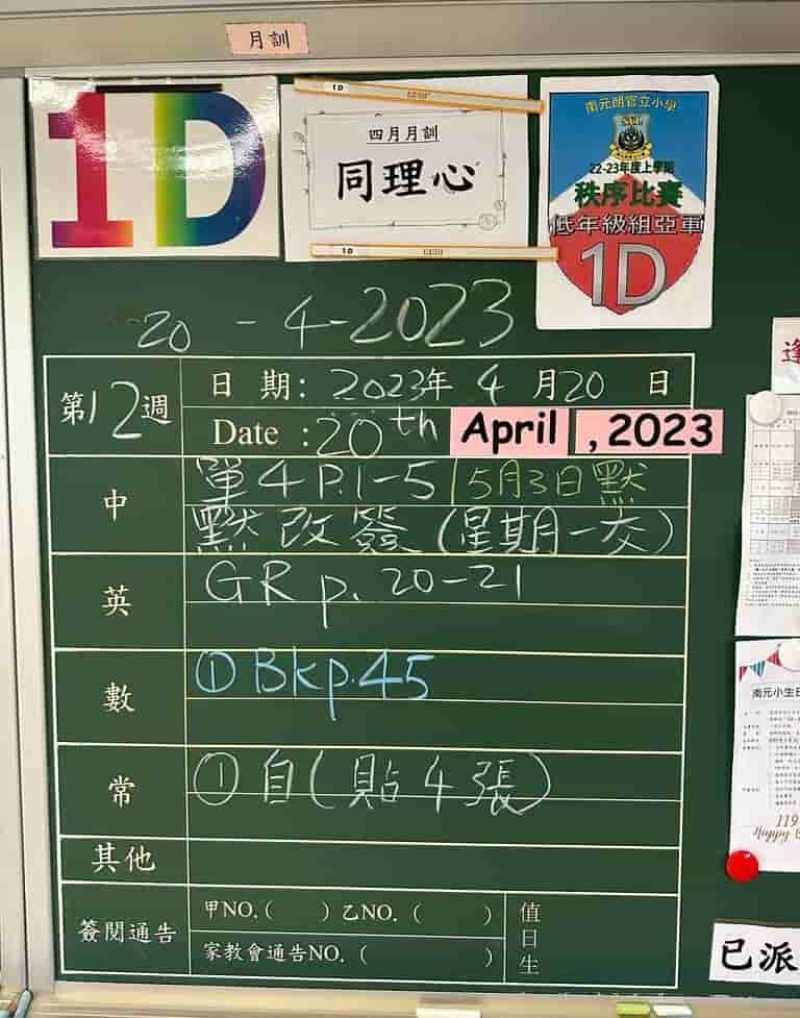 月訓
1D
1D
四月月訓
同理心
1D
南元朗官立小學
22-23年度上學期
秩序比賽
低年級組亞軍
1D
20 - 4 - 2023
第12週
日 期: 2023年 4 月20 日
Date :20th April , 2023
中
單4 P.1-5 5月3日默
默改簽 (星期一交)
英
GR p. 20-21
數
① Bk p.45
常
① 自(貼4張)
其他
簽閱通告
甲NO.( ) 乙NO. ( )
家教會通告NO. ( )
值日生
逢
南元小生日
119
Happy
已派